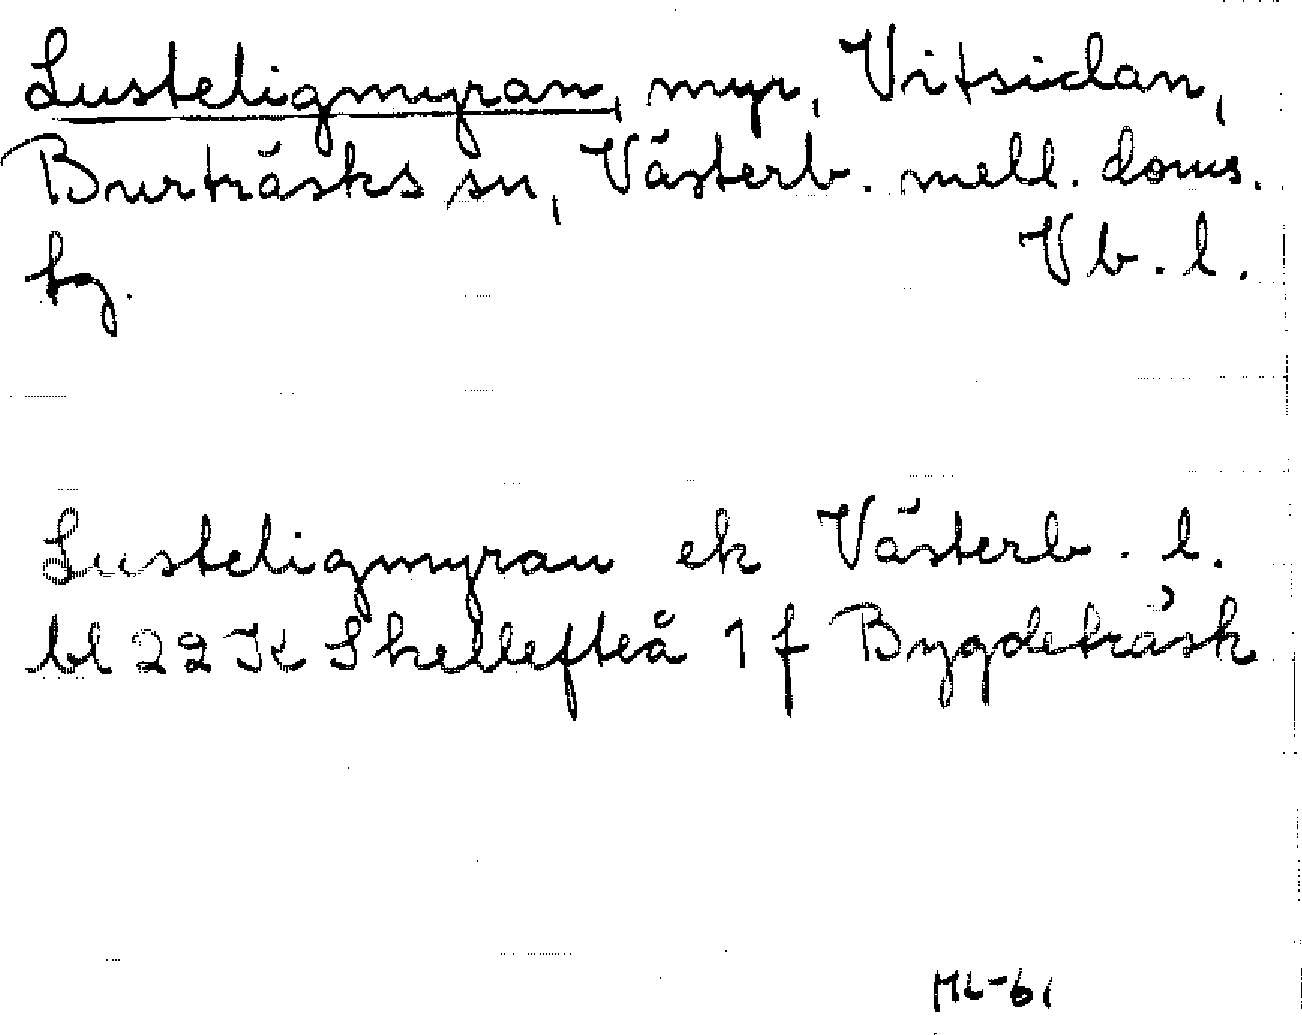 Lusteligmyran, myr, Vitsidan,
Burträsks sn, Västerb. mell. doms.
tg. Vb. l.
Lusteligmyran ek Västerb. l.
bl 22 K Skellefteå 1 f Bygdeträsk
ML-61